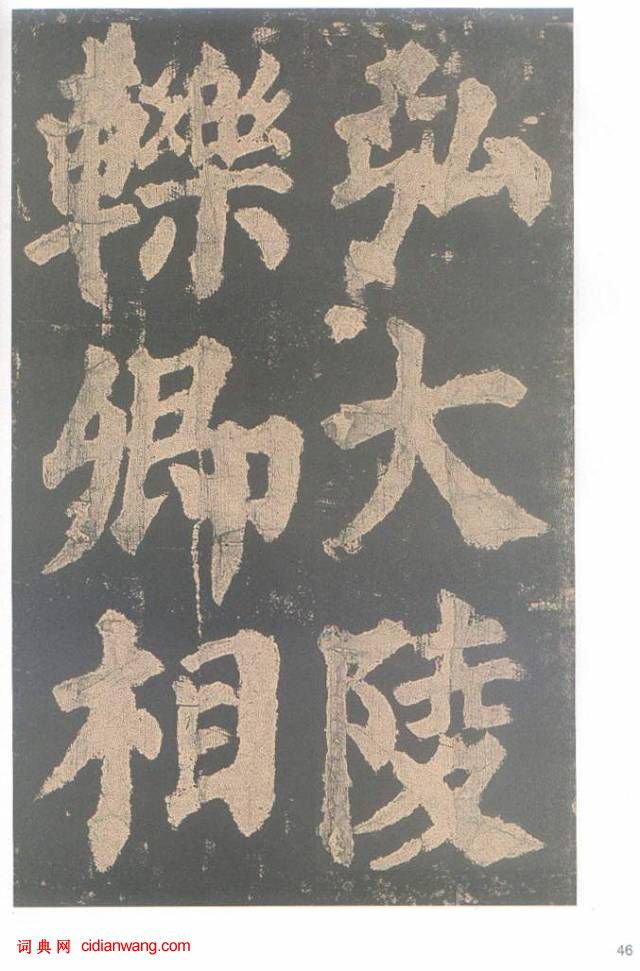 弘大陵
轢卿相
词典网 cidianwang.com
46